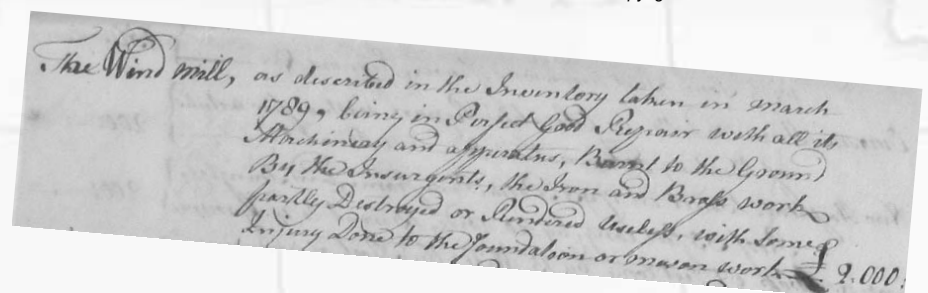 The Wind mill, as described in the Inventory taken in march
1789, being in Perfect Good Repair with all its
Machinery and apparatus, Burnt to the Ground
By the Insurgents, the Iron and Brass work
partly Destroyed or Rendered Useless, with Some
Injury Done to the foundation or mason work £ 2.000.